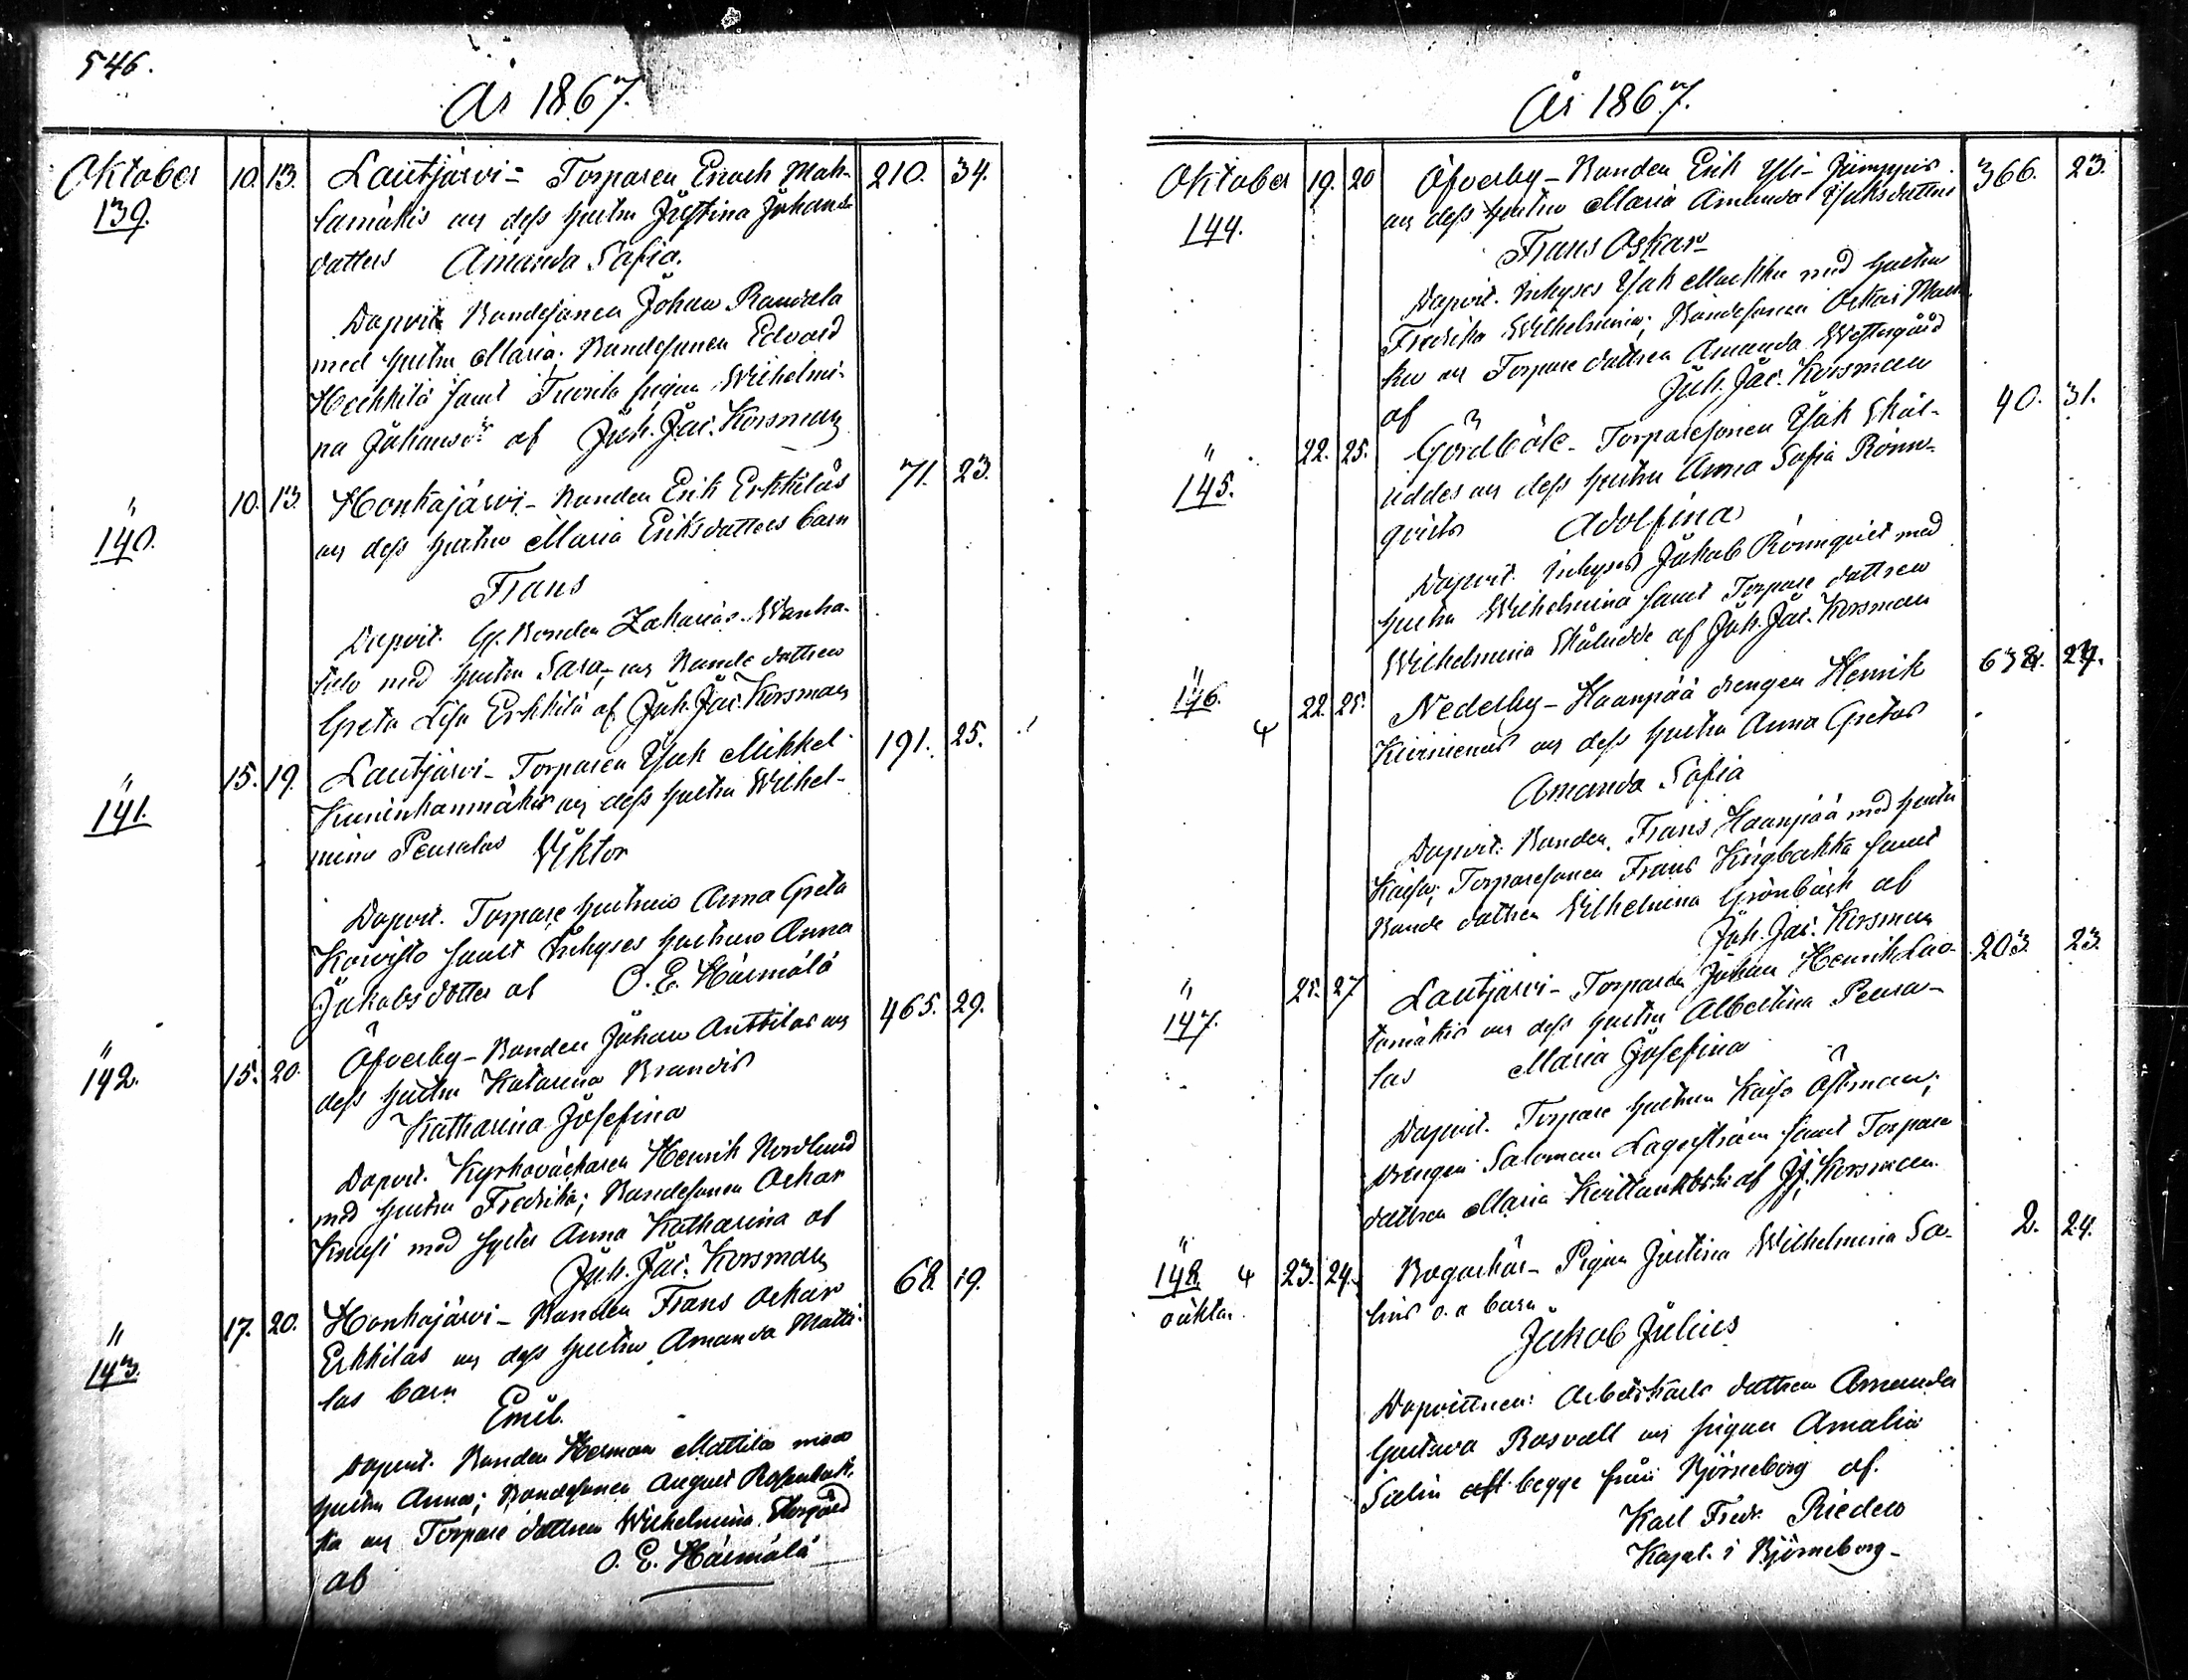 546.
År 1867.
Oktober 10. 13. Lautjärvi - Torparen Enoch Mah- 210. 34.
139. lamäkis och dess hustru Justina Johans-
datters Amanda Sofia.
Dopvit. Bondesonen Johan Randala
med hustru Maria; Bondesonen Edvard
Heikkilä samt pigan Wilhelmi-
na Johansdr af Joh. Jac. Korsman
" 10. 13. Honkajärvi - Bonden Erik Erkkilás 71. 23.
140. och dess hustru Maria Eriksdatters barn
Frans
Dopvit. Bonden Zakarias Wanha-
talo med hustru Sara, och Bonde dottren
Greta Lisa Erkkilä af Joh. Jac. Korsman
" 15. 19. Lautjärvi - Torparen Isak Mikkel 191. 25.
141. Kuninkanmäkis och dess hustru Wilhel-
mina Pensalas Viktor
Dopvit. Torpare hustrun Anna Greta
Koivisto samt Inhyses hustrun Anna
Jakobsdotter af O. E. Härmälä
" 15. 20. Öfverby - Bonden Johan Anttilas och 465. 29.
142. dess hustru Katarina Brandis
Katharina Josefina
Dopvit. Kyrkoväktaren Henrik Nordlund
med hustru Fredrika; Bondesonen Oskar
Knusi med syster Anna Katharina af
Joh. Jac. Korsman
" 17. 20. Honkajärvi - Bonden Frans Oskar 68. 19.
143. Erkkilás och dess hustru Amanda Matti-
las barn
Emil.
Dopvit. Bonden Herman Mattila med
hustru Anna; Bondesonen August Rosenbak-
ka och Torpare dottren Wilhelmina
af O. E. Härmälä
År 1867.
Oktober 19. 20 Öfverby - Bonden Erik Yli-Jämppis 366. 23.
144. och dess hustru Maria Amanda Isaksdatters
Frans Oskar
Dopvit. Inhyses Isak Markku med hustru
Fredrika Wilhelmina; Bondesonen Oskar Mark-
ku och Torpare dottren Amanda Westergård
af Joh. Jac. Korsman
" 22. 25. Gårdböle - Torparesonen Isak Skål- 40. 31.
145. uddes och dess hustru Anna Sofia Rönn-
qvists Adolfina
Dopvit. Inhyses Jakob Rönnqvist med
hustru Wilhelmina samt Torpare dottren
Wilhelmina Skåludde af Joh. Jac. Korsman
" 22. 25. Nederby - Haanpää drengen Henrik 638. 24.
146. Kiviniemis och dess hustru Anna Gretas
Amanda Sofia
Dopvit. Bonden Frans Haanpää med hustru
Kaisa; Torparesonen Frans Kingbakka samt
Bonde dottren Wilhelmina Grönbäck af
Joh. Jac. Korsman
" 25. 27 Lautjärvi - Torparen Johan Henrik Lau- 203. 23.
147. tamäkis och dess hustru Albertina Pensa-
las Maria Josefina
Dopvit. Torpare hustrun Kaisa Östman;
Drengen Saloman Lagerström samt Torpare
dottren Maria af J. J. Korsman.
" 23. 24. Bogaskär - Pigan Justina Wilhelmina Sa- 2. 24.
148. 4
oäkta. lins o. ä barn
Jakob Julius
Dopvittnen: Arbetskarls dottren Amanda
Gustava Rosvall och pigan Amalia
Salin begge från Björneborg af.
Karl Fredr. Riedew
Kapel. i Björneborg -